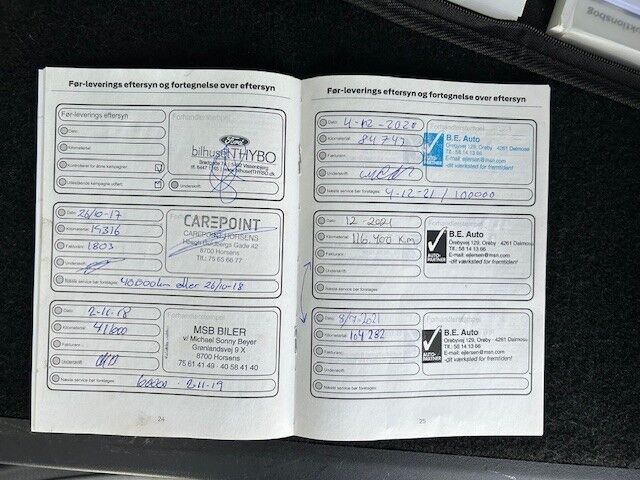 uktionsbog
Før-leverings eftersyn og fortegnelse over eftersyn
Før-leverings eftersyn
Dato:
Kilometertal:
Kontrolleret for åbne kampagner:
Udestående kampagne udført:
Forhandlerstempel
Ford
bilhusetTHYBO
Underskrift:
Dato: 26/10-17
Kilometertal: 19316
Fakturanr.: 1803
Underskrift:
CAREPOINT
CAREPOINT HORSENS
8700 Horsens
Tlf.: 75 65 66 77
Næste service bør foretages: 40000km eller 26/10-18
Dato: 2-11-18
Kilometertal: 41600
Fakturanr.:
Underskrift:
MSB BILER
v/ Michael Sonny Beyer
Grønlandsvej 9 X
8700 Horsens
75 61 41 49 · 40 58 41 40
Næste service bør foretages: 60000 · 2-11-19
24
Før-leverings eftersyn og fortegnelse over eftersyn
Dato: 4-12-2020
Kilometertal: 84747
Fakturanr.:
Underskrift:
B.E. Auto
Orebyvej 129, Oreby · 4261 Dalmose
Tlf.: 58 14 13 66
E-mail: ejlersen@msn.com
-dit værksted for fremtiden!
Næste service bør foretages: 4-12-21 / 100000
Dato: 12-2021
Kilometertal: 116.400 Km
Fakturanr.:
Underskrift:
AUTO-PARTNER
B.E. Auto
Orebyvej 129, Oreby · 4261 Dalmose
Tlf.: 58 14 13 66
E-mail: ejlersen@msn.com
-dit værksted for fremtiden!
Næste service bør foretages:
Dato: 8/7-2021
Kilometertal: 104282
Fakturanr.:
Underskrift:
AUTO-PARTNER
B.E. Auto
Orebyvej 129, Oreby · 4261 Dalmose
Tlf.: 58 14 13 66
E-mail: ejlersen@msn.com
-dit værksted for fremtiden!
Næste service bør foretages:
25